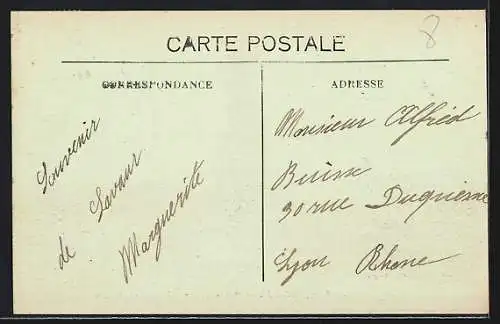 8
CARTE POSTALE
CORRESPONDANCE
ADRESSE
Souvenir
de Lavaur
Marguerite
Monsieur Alfred
Buisse
30 rue Duquesne
Lyon Rhone